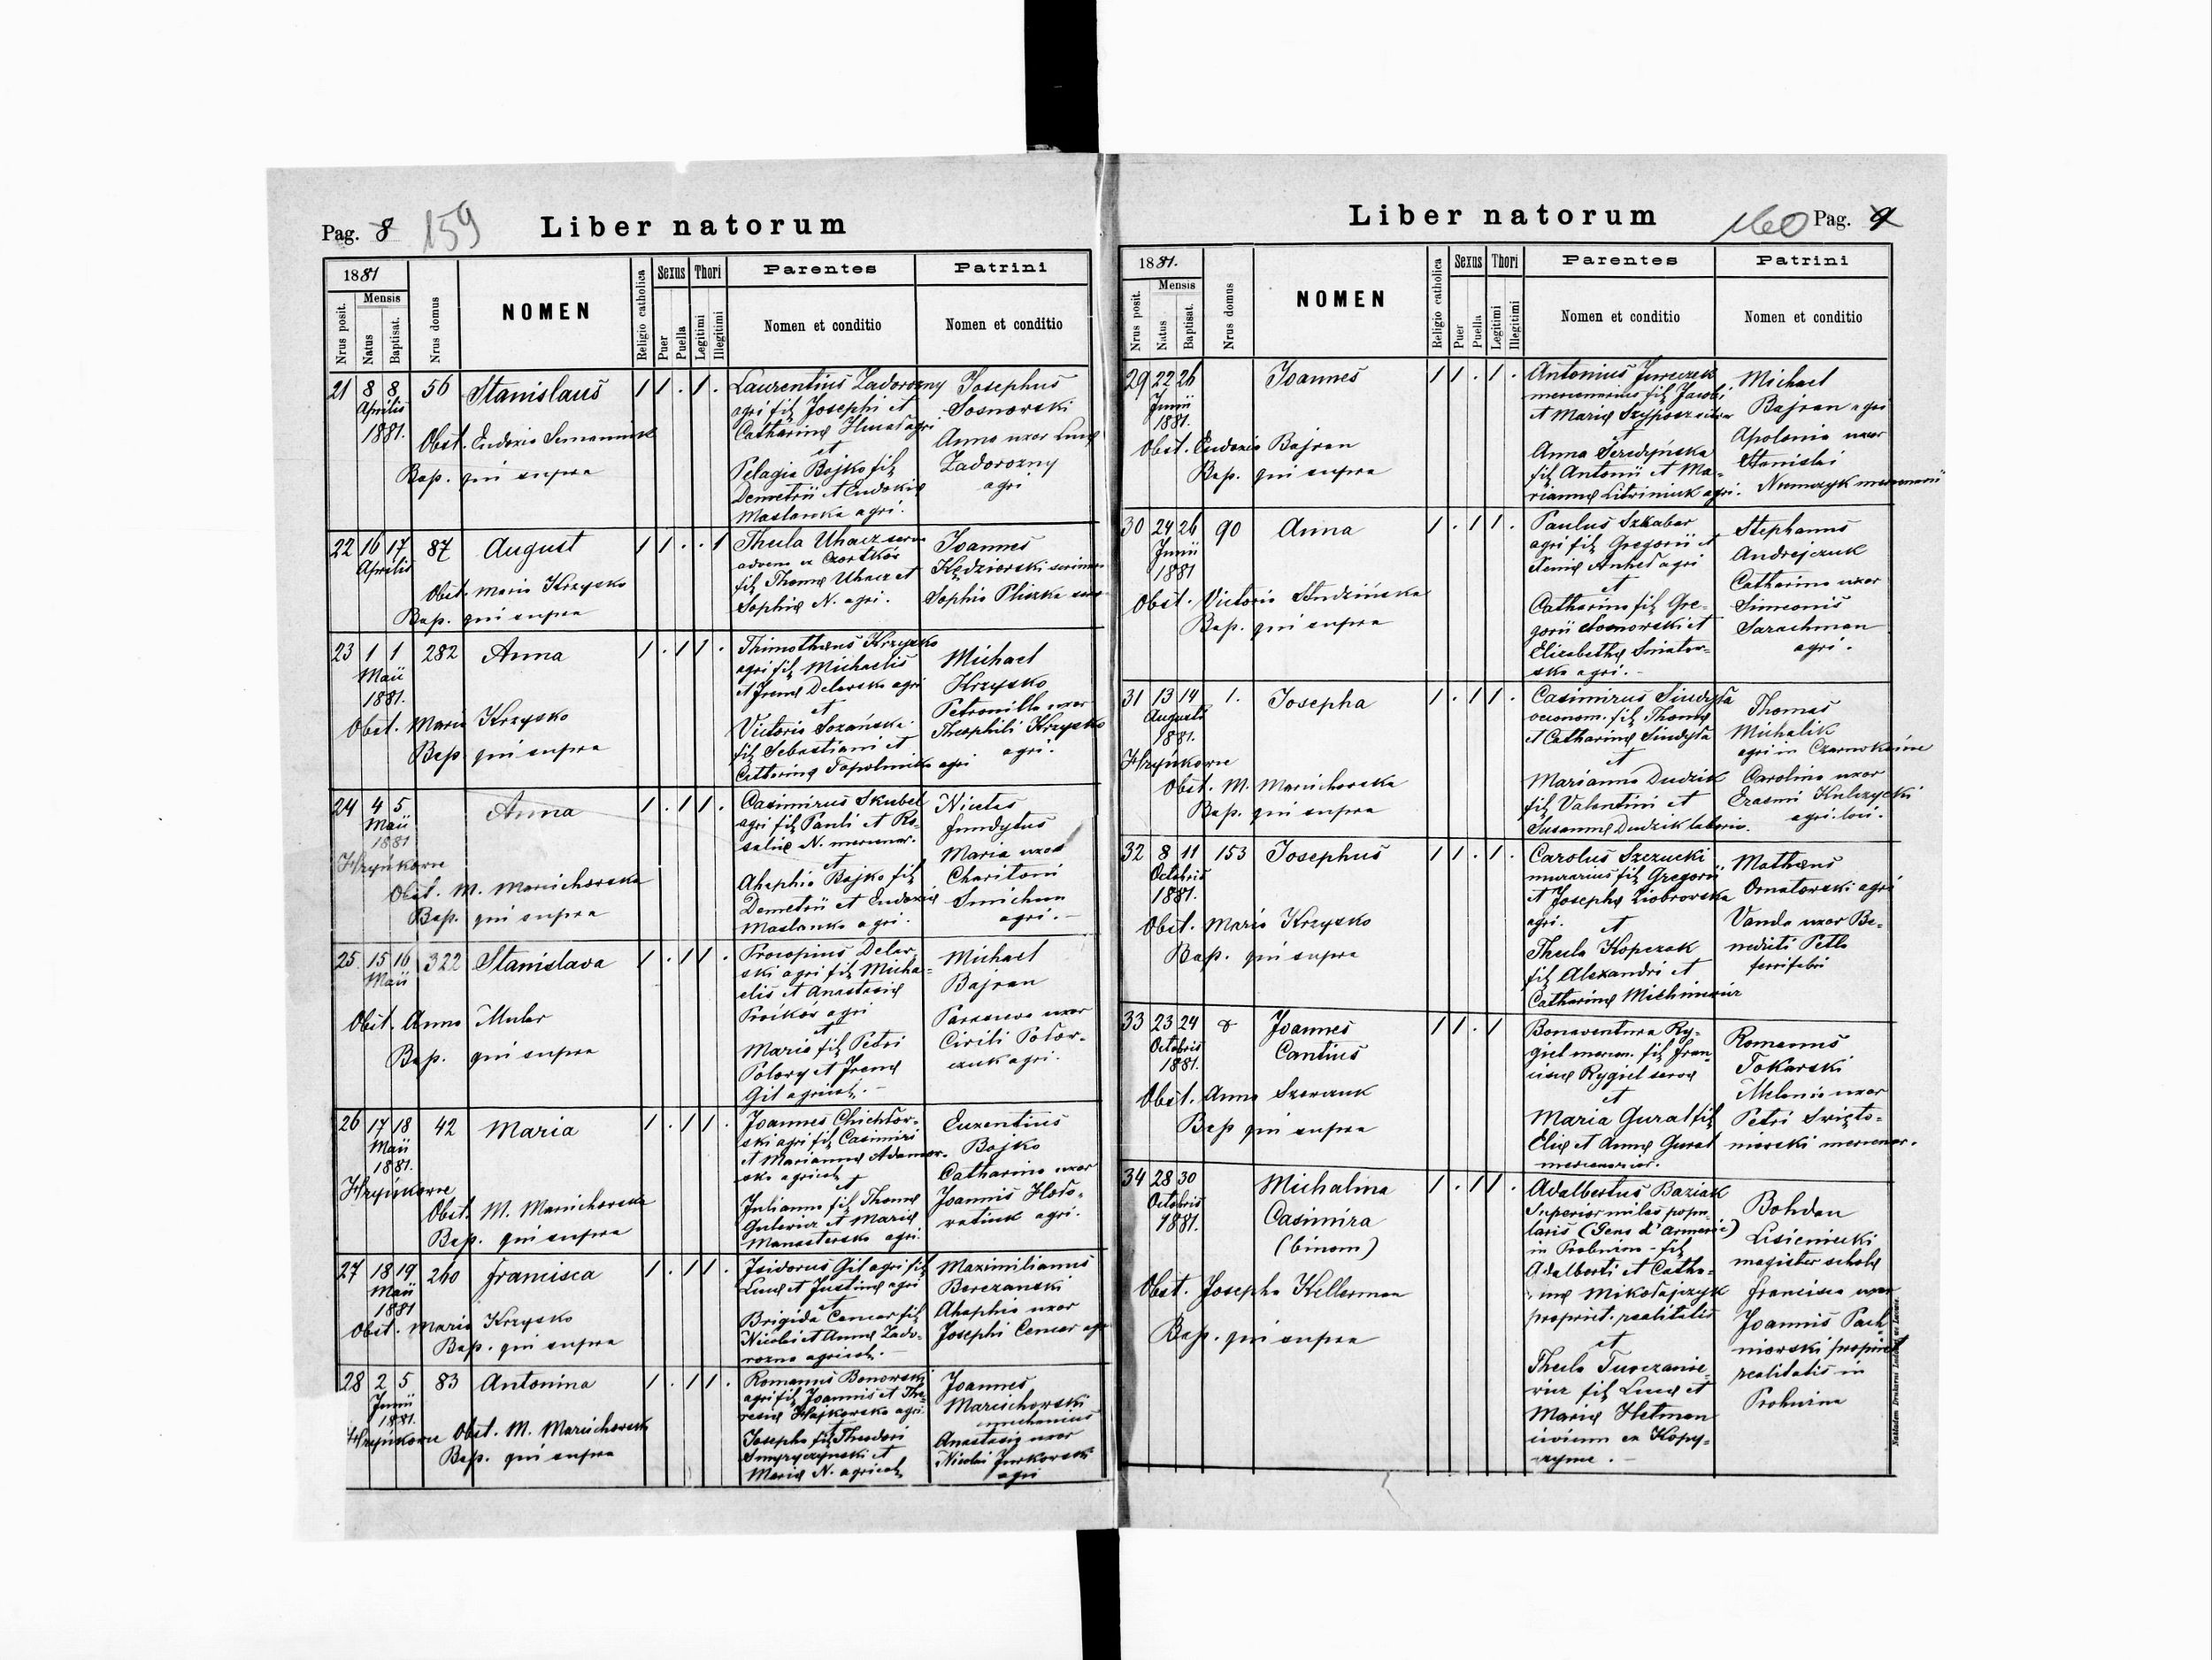 Pag. 8 159 Liber natorum
1881
Nrus posit.
Mensis
Natus
Baptisat.
Nrus domus
NOMEN
Religio catholica
Sexus
Puer
Puella
Thori
Legitimi
Illegitimi
Parentes
Nomen et conditio
Patrini
Nomen et conditio
21 8 8 56 Stanislaus 1 1 . 1 .
Aprilis
1881.
Obst. Eudoxia
Bap. qui supra
Laurentius Zadorozny
agri fil Josephi et
Catharinæ agri
et
Pelagia Bojko fil
Demetrii et Eudokiæ
Maslanka agri.
Josephus
Sosnowski
Anna uxor Lucæ
Zadorozny
agri
22 16 17 87 August 1 1 . . 1
Aprilis
Obst. Maria Krzysko
Bap. qui supra
Thecla Uhacz serva
advena ex Czortków
fil Thomæ Uhacz et
Sophiæ N. agri.
Joannes
Kędzierski
Sophia Pliszka
23 1 1 282 Anna 1 . 1 1 .
Maii
1881.
Obst. Maria Krzysko
Bap. qui supra
Thimothæus Krzysko
agri fil Michaelis
et Irenæ Delavska agri
et
Victoria Sozańska
fil Sebastiani et
Catharinæ agri
Michael
Krzysko
Petronilla uxor
Theophili Krzysko
agri.
24 4 5 Anna 1 . 1 1 .
Maii
1881
Hryńkowce
Obst. M. Marcichowska
Bap. qui supra
Casimirus Skubel
agri fil Pauli et Ro-
saliæ N. mercenar.
et
Ahaphia Bojko fil
Demetrii et Eudoxiæ
Maslanka agri.
Nicetas
Maria uxor
Charitoni
agri.
25 15 16 322 Stanislava 1 . 1 1 .
Maii
Obst. Anna Mular
Bap. qui supra
Procopius Delav-
ski agri fil Micha-
elis et Anastasiæ
agri
et
Maria fil Petri
et Irenæ
Gil agricol.
Michael
Bajran
Parascewa uxor
Cirili
agri.
26 17 18 42 Maria 1 . 1 1 .
Maii
1881.
Hryńkowce
Obst. M. Marcichowska
Bap. qui supra
Joannes Chichłow-
ski agri fil Casimiri
et Mariannæ Adamow-
ska agricol.
et
Julianna fil Thomæ
et Mariæ
Manasterska agri.
Euxentius
Bojko
Catharina uxor
Joannis Hoło-
watiuk agri.
27 18 19 260 Francisca 1 . 1 1 .
Maii
1881
Obst. Maria Krzysko
Bap. qui supra
Isidorus Gil agri fil
Lucæ et Justinæ agri
et
Brigida Cencar fil
Nicolai et Annæ Zado-
rozna agricol.
Maximilianus
Berezanski
Ahaphia uxor
Josephi Cencar agri
28 2 5 83 Antonina 1 . 1 1 .
Junii
1881.
Hryńkowce Obst. M. Marcichowska
Bap. qui supra
Romanus Bonowski
agri fil Joannis et The-
resiæ Hajkowska agri
Josepha fil Theodori
et
Mariæ N. agricol.
Joannes
Marcichowski
Anastasia uxor
Nicolai Jurkowski
agri
Liber natorum 160 Pag. 9
1881.
Nrus posit.
Mensis
Natus
Baptisat.
Nrus domus
NOMEN
Religio catholica
Sexus
Puer
Puella
Thori
Legitimi
Illegitimi
Parentes
Nomen et conditio
Patrini
Nomen et conditio
29 22 26 Joannes 1 1 . 1 .
Junii
1881.
Obst. Eudoxia Bajran
Bap. qui supra
Antonius Jureczek
mercenarius fil Jacobi
et Mariæ
et
Anna
fil Antonii et Ma-
riannæ agri.
Michael
Bajran agri
Apolonia uxor
Stanislai
Niemczyk mercenarii
30 24 26 90 Anna 1 . 1 1 .
Junii
1881
Obst. Victoria Studzińska
Bap. qui supra
Paulus Szkabar
agri fil Gregorii et
agri
et
Catharina fil Gre-
gorii Sosnowski et
Elisabethæ Smiatow-
ska agri.
Stephanus
Andrejczuk
Catharina uxor
Simeonis
Sarachman
agri.
31 13 14 1. Josepha 1 . 1 1 .
Augusti
1881.
Hryńkowce
Obst. M. Marcichowska
Bap. qui supra
Casimirus Sindyła
oeconom. fil Thomæ
et Catharinæ Sindyła
et
Marianna Dudzik
fil Valentini et
Susannæ Dudzik
Thomas
Michalik
agri in Czarnokońce
Carolina uxor
Erasmi Kulczycki
agri. loci.
32 8 11 153 Josephus 1 1 . 1 .
Octobris
1881.
Obst. Maria Krzysko
Bap. qui supra
Carolus Szezucki
murarius fil Gregorii
et Josephæ Ziobrowska
agri.
et
Thecla Kopczak
fil Alexandri et
Catharinæ
Mathæus
Ornatowski agri
Vanda uxor Be-
nedicti Petla
ferrifabri
33 23 24 Joannes 1 1 . 1
Octobris Cantius
1881.
Obst. Anna Szewczuk
Bap qui supra
Bonaventura Ry-
giel mercen. fil Fran-
ciscæ Rygiel serva
et
Maria Gural fil
Eliæ et Annæ Gural
mercenarior.
Romanus
Tokarski
Melania uxor
Petri Święto-
niowski mercenar.
34 28 30 Michalina 1 . 1 1 .
Octobris Casimira
1881. (binom)
Obst. Josepha Kellerman
Bap. qui supra
Adalbertus Baziak
Superior miles popu-
laris (Gens d'armerie)
in Probuzna - fil
Adalberti et Catha-
rinæ Mikołajczyk
propriet. realitatis
et
Thecla Turczanie-
wicz fil Lucæ et
Mariæ Hetman
civium ex Kopy-
czynce.
Bohdan
Lisieniecki
magister scholæ
Francisca uxor
Joannis Pach-
niowski propriet
realitatis in
Probuzna